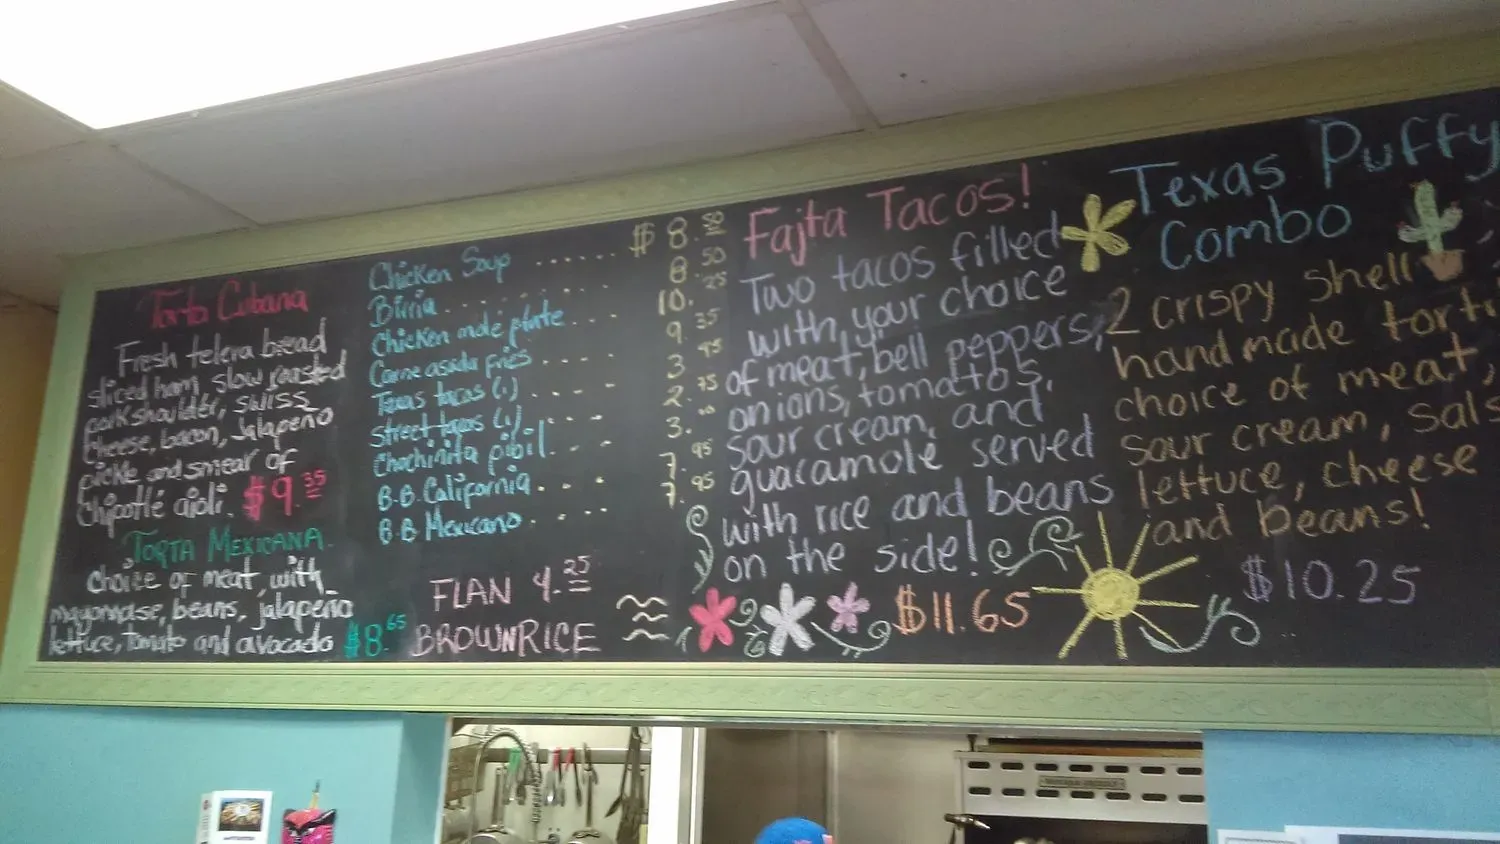 Torta Cubana
Fresh telera bread
sliced ham, slow roasted
pork shoulder, swiss
cheese, bacon, Jalapeño
pickle and smear of
Chipotlé aioli. $9.35
TORTA MEXICANA
choice of meat, with
mayonnase, beans, jalapeño
lettuce, Tomato and avocado $8.65
Chicken Soup ...... $8.50
Birria ........ 8.50
Chicken mole plate ... 10.25
Carne asada fries 9.35
Texas tacos (1.) .... 3.45
Street tacos (1.) .... 2.75
Cochinita pibil ... 3.00
B.B. California .... 7.95
B.B Mexicano .... 7.95
FLAN 4.25
BROWN RICE
Fajita Tacos!
Two tacos filled
with your choice
of meat, bell peppers,
onions, tomatos,
sour cream, and
guacamole served
with rice and beans
on the side!
$11.65
Texas Puffy
Combo
2 crispy shell
hand made torti
choice of meat,
sour cream, sals
lettuce, cheese
and beans!
$10.25